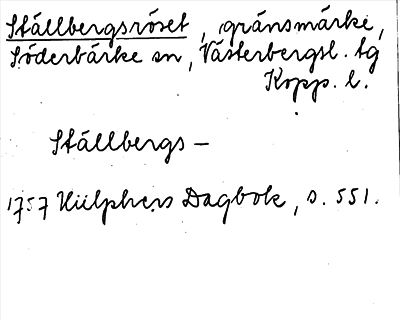 Ställbergsröset, gränsmärke,
Söderbärke sn, Västerbergsl. tg
Kopp. l.
Ställbergs –
1757 Hülphers Dagbok, s. 551.